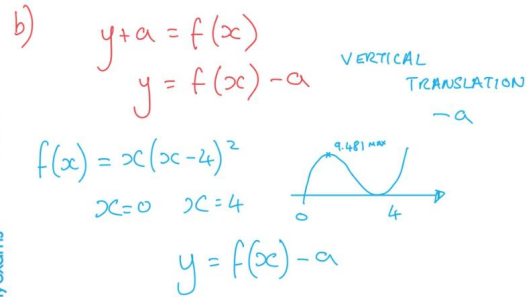 b)
y+a = f(x)
y = f(x) - a
VERTICAL
TRANSLATION
-a
f(x) = x(x-4)²
x=0 x=4
9.481 MAX
0 4
y = f(x) - a